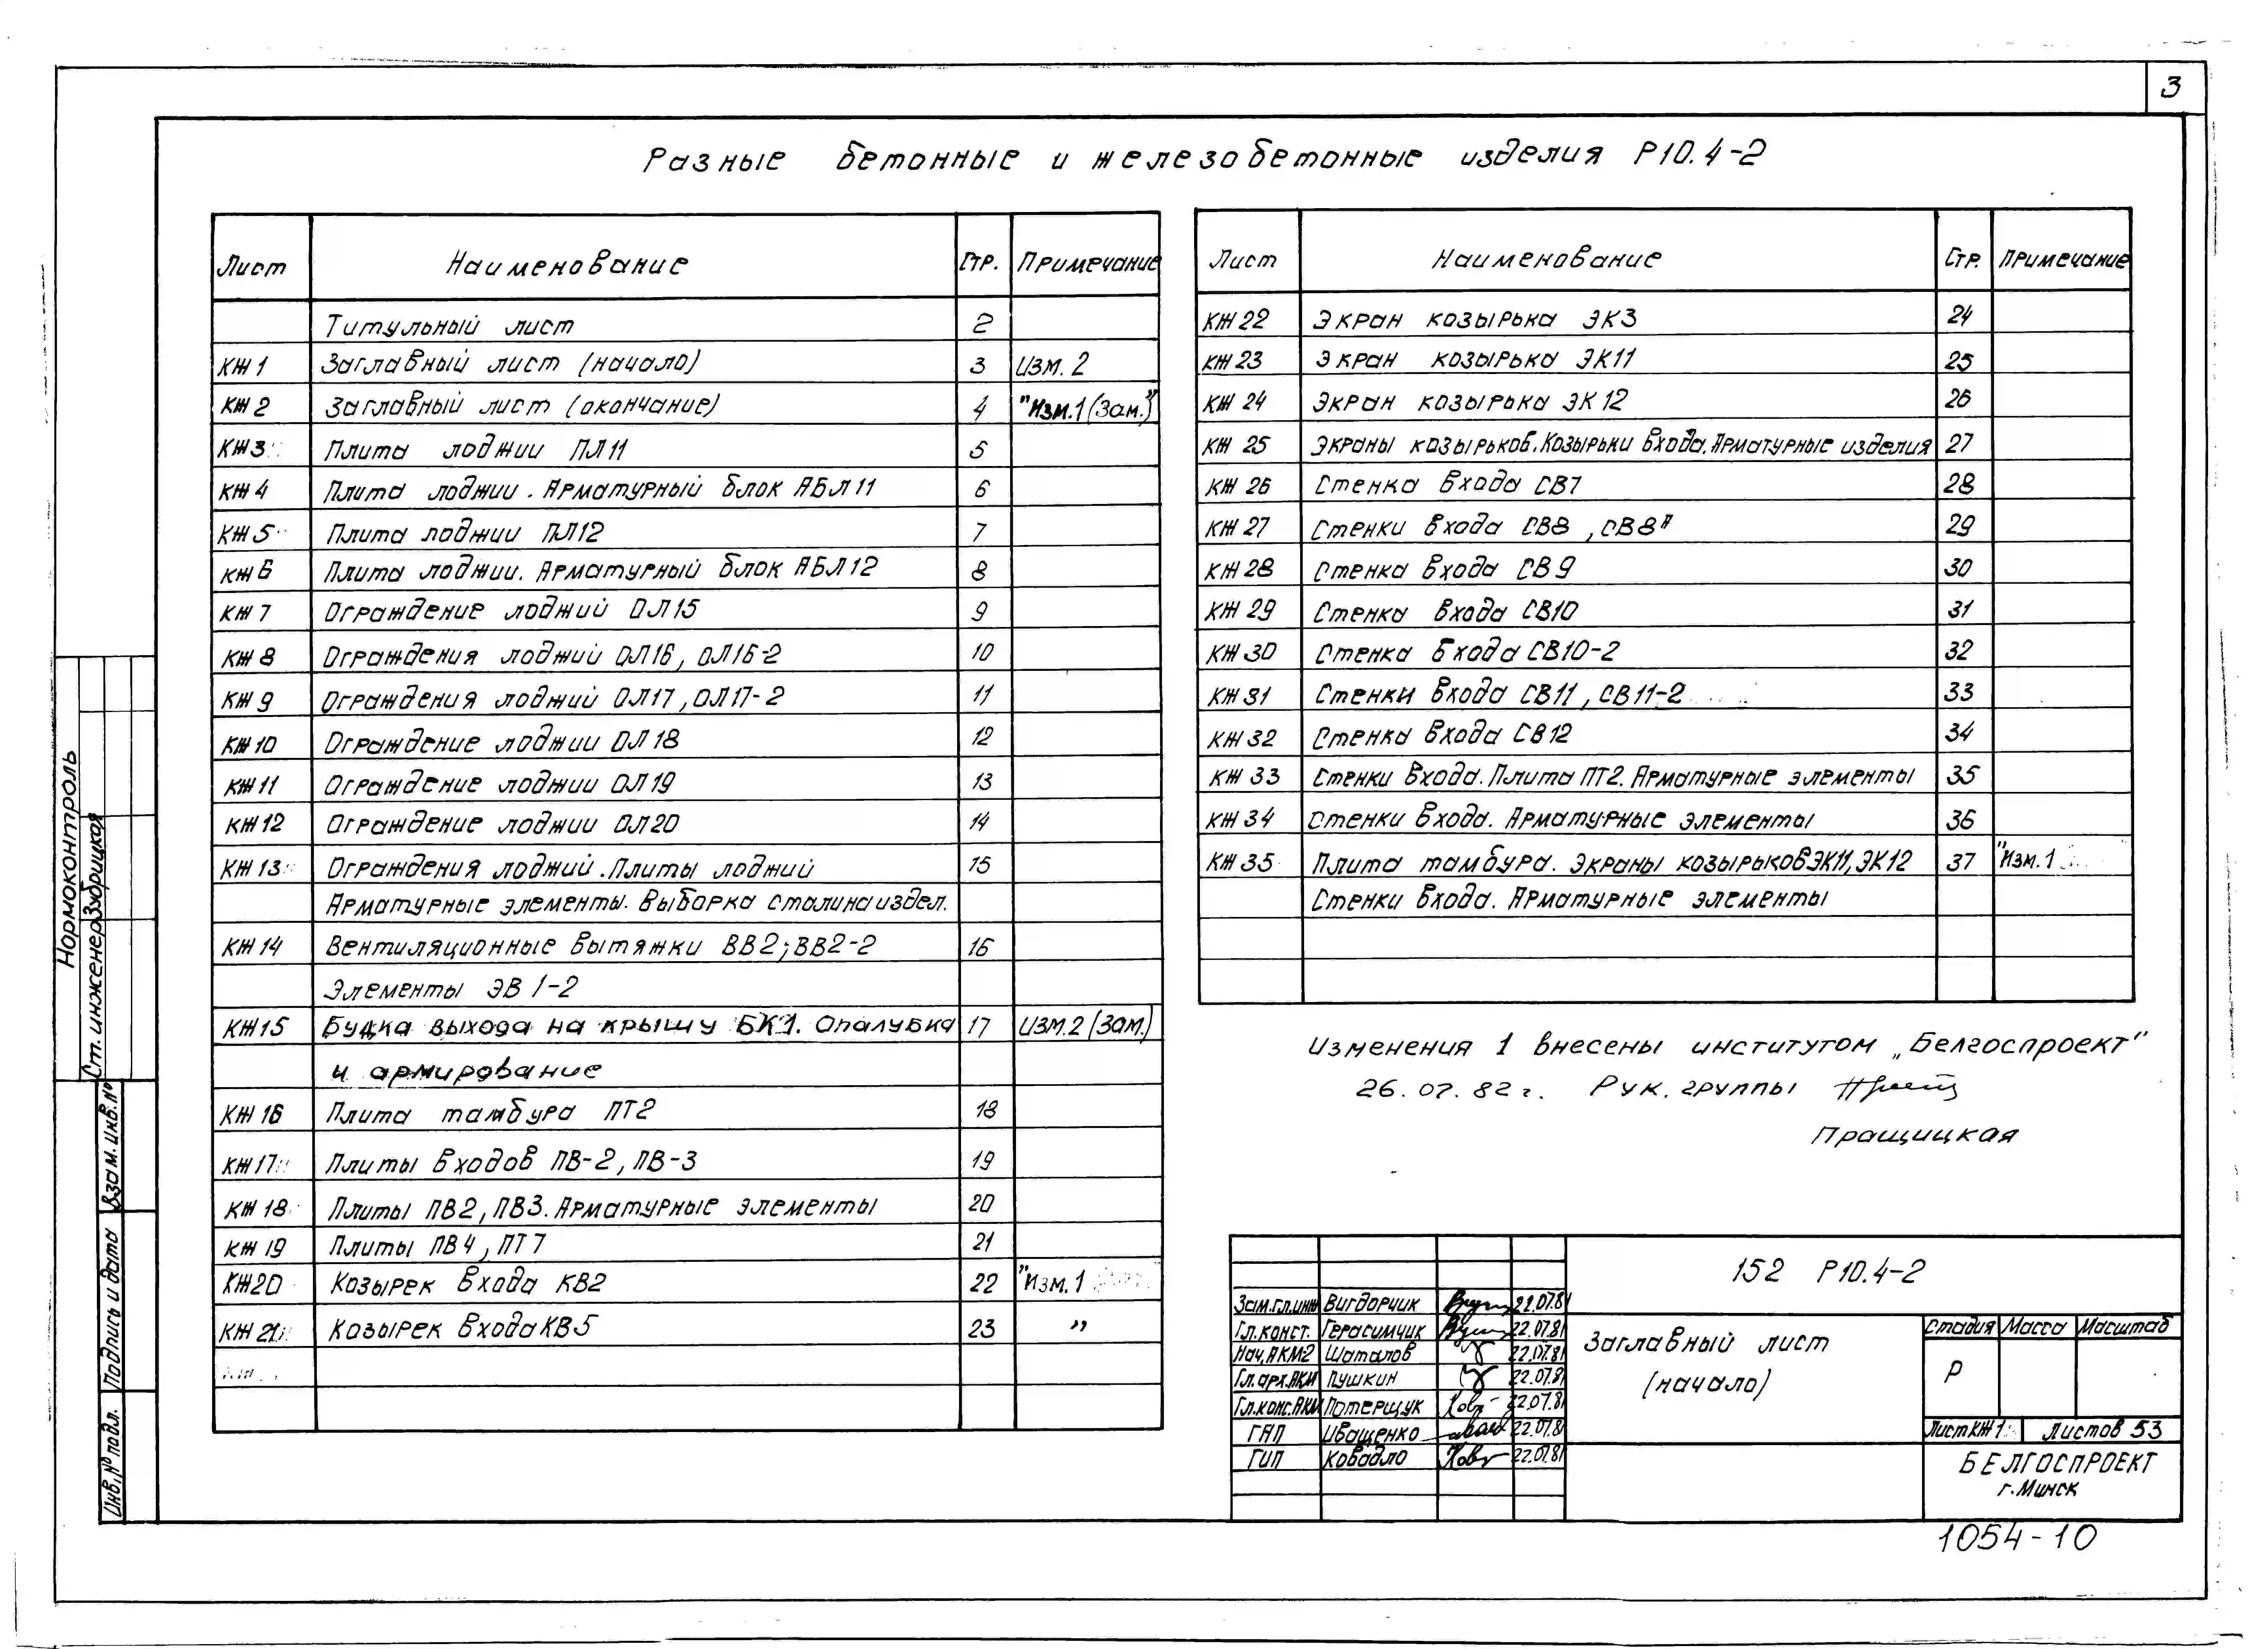 3
Разные бетонные и железобетонные изделия Р10.4-2
Лист Наименование Стр. Примечание
Титульный лист 2
КЖ1 Заглавный лист (начало) 3 Изм. 2
КЖ2 Заглавный лист (окончание) 4 "Изм.1 (Зам.)"
КЖ3 Плита лоджии ПЛ11 5
КЖ4 Плита лоджии. Арматурный блок АБЛ11 6
КЖ5 Плита лоджии ПЛ12 7
КЖ6 Плита лоджии. Арматурный блок АБЛ12 8
КЖ7 Ограждение лоджий ОЛ15 9
КЖ8 Ограждения лоджий ОЛ16, ОЛ16-2 10
КЖ9 Ограждения лоджий ОЛ17, ОЛ17-2 11
КЖ10 Ограждение лоджии ОЛ18 12
КЖ11 Ограждение лоджии ОЛ19 13
КЖ12 Ограждение лоджии ОЛ20 14
КЖ13 Ограждения лоджий. Плиты лоджий 15
Арматурные элементы. Выборка стали на издел.
КЖ14 Вентиляционные вытяжки ВВ2; ВВ2-2 16
Элементы ЭВ 1-2
КЖ15 Будка выхода на крышу БК1. Опалубка 17 Изм.2 (Зам.)
и армирование
КЖ16 Плита тамбура ПТ2 18
КЖ17 Плиты входов ПВ-2, ПВ-3 19
КЖ18 Плиты ПВ2, ПВ3. Арматурные элементы 20
КЖ19 Плиты ПВ4, ПТ7 21
КЖ20 Козырек входа КВ2 22 "Изм.1
КЖ21 Козырек входа КВ5 23 "
Лист Наименование Стр. Примечание
КЖ22 Экран козырька ЭК3 24
КЖ23 Экран козырька ЭК11 25
КЖ24 Экран козырька ЭК12 26
КЖ25 Экраны козырьков. Козырьки входа. Арматурные изделия 27
КЖ26 Стенка входа СВ7 28
КЖ27 Стенки входа СВ8, СВ8А 29
КЖ28 Стенка входа СВ9 30
КЖ29 Стенка входа СВ10 31
КЖ30 Стенка входа СВ10-2 32
КЖ31 Стенки входа СВ11, СВ11-2 33
КЖ32 Стенка входа СВ12 34
КЖ33 Стенки входа. Плита ПТ2. Арматурные элементы 35
КЖ34 Стенки входа. Арматурные элементы 36
КЖ35 Плита тамбура. Экраны козырьков ЭК11, ЭК12 37 "Изм.1
Стенки входа. Арматурные элементы
Изменения 1 внесены институтом „Белгоспроект"
26.07.82 г. Рук. группы
Пращицкая
152 Р10.4-2
Зам.гл.инж Вигдорчик 22.07.81
Гл.конст. Герасимчик 22.07.81
Нач.АКМ2 Шаталов 22.07.81
Гл.арх.АКМ Пушкин 22.07.81
Гл.конс.АКМ Потерщук 22.07.81
ГАП Иващенко 22.07.81
ГИП Ковадло 22.07.81
Заглавный лист
(начало)
Стадия Масса Масштаб
Р
Лист КЖ1 Листов 53
БЕЛГОСПРОЕКТ
г. Минск
1054-10
Нормоконтроль
Ст. инженер Зубрицкая
Взам. инв. №
Подпись и дата
Инв. № подл.